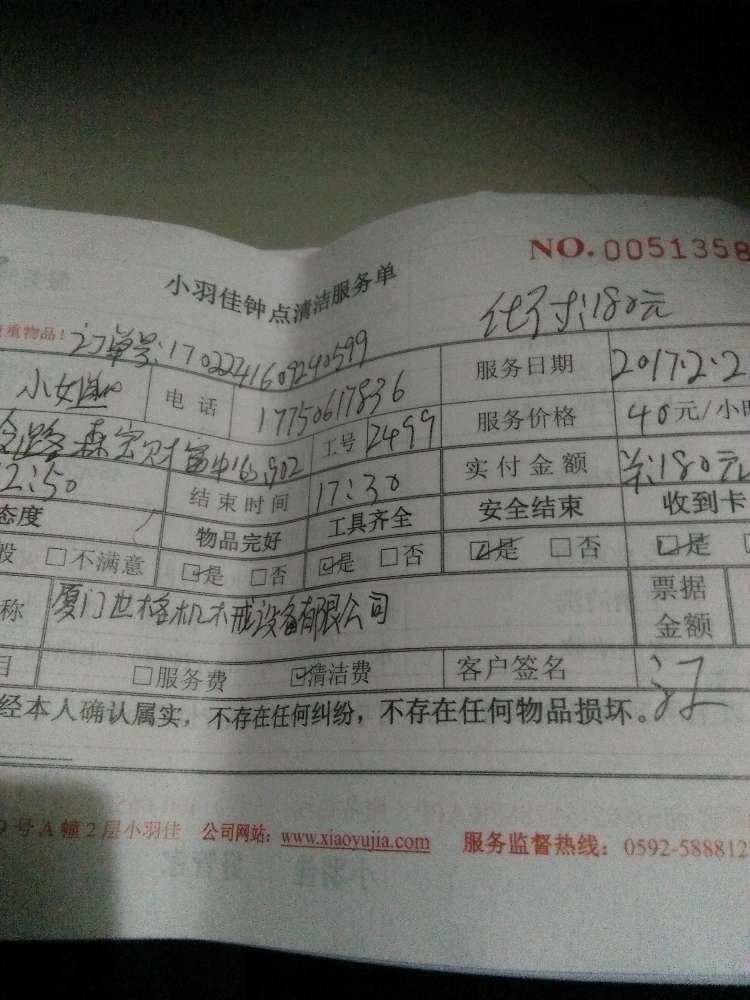 NO. 0051358
小羽佳钟点清洁服务单
重物品!
订单号:17022241609240599
代付:180元
小姐 电话 17750617836 服务日期 2017.2.2
路森宝财富中心,902 工号 2499 服务价格 40元/小时
2:50 结束时间 17:30 实付金额 180元
态度 物品完好 工具齐全 安全结束 收到卡
般 □不满意 ☑是 □否 ☑是 □否 ☑是 □否 ☑是
称 厦门世格机械设备有限公司 票据金额
目 □服务费 ☑清洁费 客户签名 江
经本人确认属实,不存在任何纠纷,不存在任何物品损坏。
9号A幢2层小羽佳 公司网站:www.xiaoyujia.com 服务监督热线:0592-588812